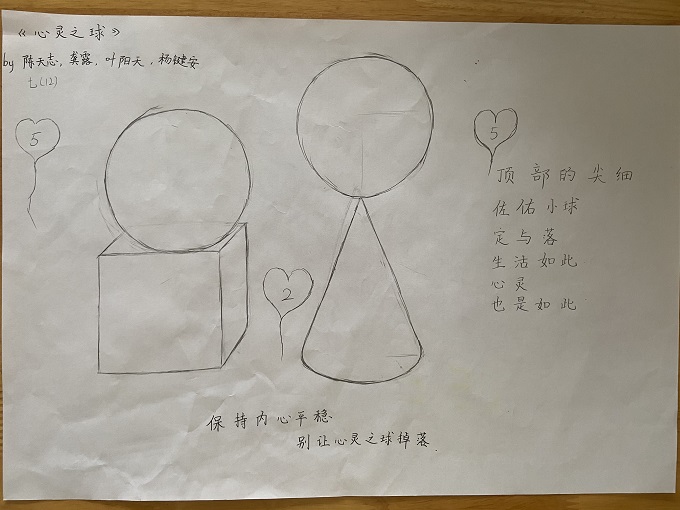 《心灵之球》
by 陈天志, 龚露, 叶阳天, 杨健安
七(12)
5
5
顶部的尖细
佐佑小球
定与落
生活如此
心灵
也是如此
2
保持内心平稳
别让心灵之球掉落